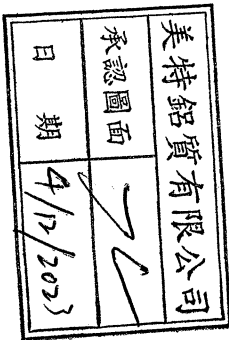 美特鋁質有限公司
承認圖面
日期 4/12/2023